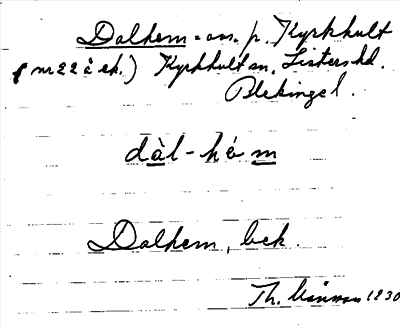 Dalhem = av. p. Kyrkhult
(nr 22 à ek.) Kyrkhult sn, Listers hd.
Blekinge l.
dàl-hém
Dalhem, bek.
Th. 1930